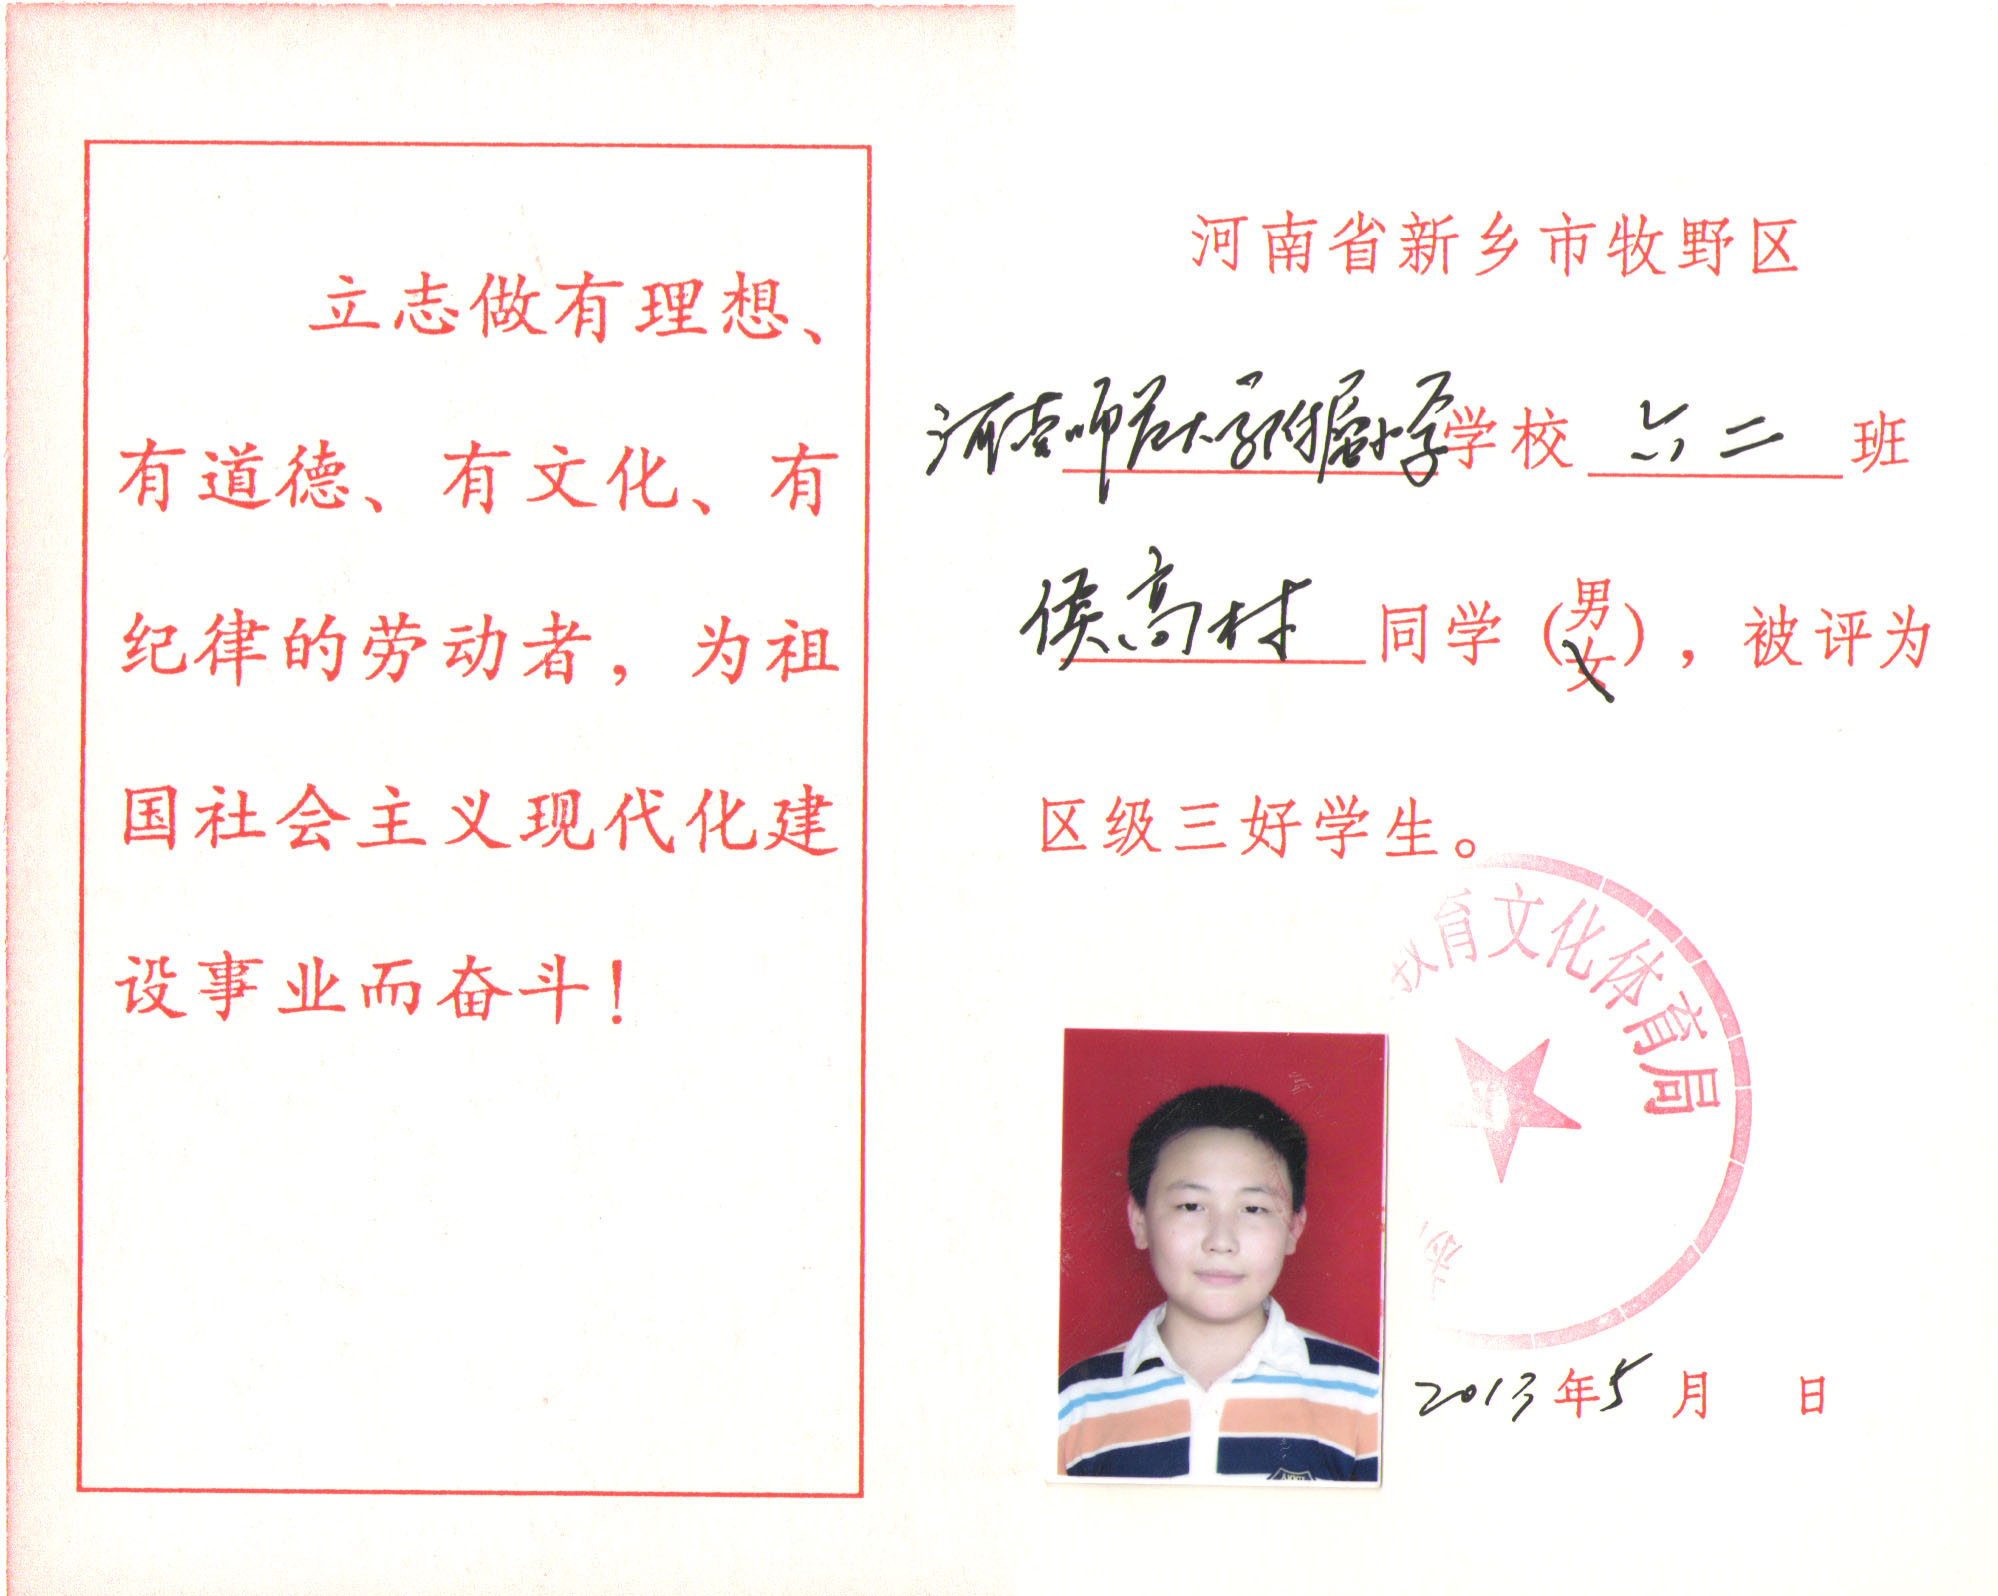 立志做有理想、
有道德、有文化、有
纪律的劳动者，为祖
国社会主义现代化建
设事业而奋斗！
河南省新乡市牧野区
河南师范大学附属小学学校 六二 班
侯高村 同学（男女），被评为
区级三好学生。
教育文化体育局
2013年5月 日